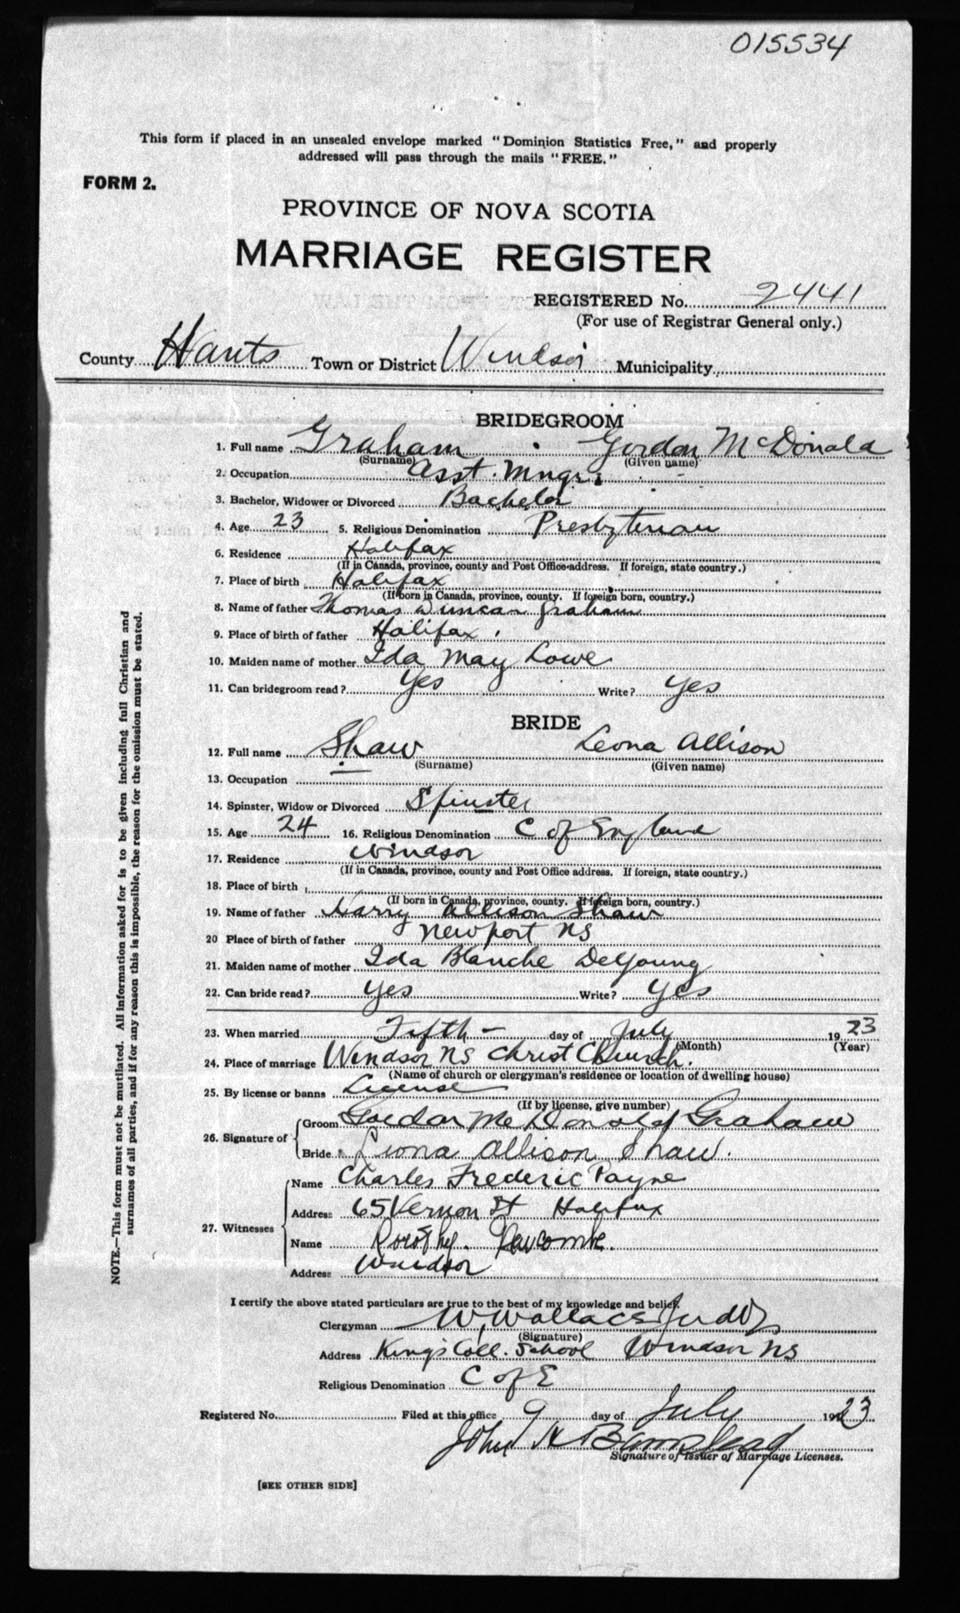 015534
This form if placed in an unsealed envelope marked "Dominion Statistics Free," and properly
addressed will pass through the mails "FREE."
FORM 2.
PROVINCE OF NOVA SCOTIA
MARRIAGE REGISTER
REGISTERED No. 2441
(For use of Registrar General only.)
County Hants Town or District Windsor Municipality
BRIDEGROOM
1. Full name Graham Gordon McDonald
(Surname) (Given name)
2. Occupation Asst. Mngr.
3. Bachelor, Widower or Divorced Bachelor
4. Age 23 5. Religious Denomination Presbyterian
6. Residence Halifax
(If in Canada, province, county and Post Office address. If foreign, state country.)
7. Place of birth Halifax
(If born in Canada, province, county. If foreign born, country.)
8. Name of father Thomas Duncan Graham
9. Place of birth of father Halifax.
10. Maiden name of mother Ida May Lowe
11. Can bridegroom read? Yes Write? Yes
BRIDE
12. Full name Shaw Leona Allison
(Surname) (Given name)
13. Occupation
14. Spinster, Widow or Divorced Spinster
15. Age 24 16. Religious Denomination C of England
17. Residence Windsor
(If in Canada, province, county and Post Office address. If foreign, state country.)
18. Place of birth
(If born in Canada, province, county. If foreign born, country.)
19. Name of father Harry Allison Shaw
20 Place of birth of father Newport NS
21. Maiden name of mother Ida Blanche DeYoung
22. Can bride read? Yes Write? Yes
23. When married Fifth - day of July 1923
(Month) (Year)
24. Place of marriage Windsor NS Christ Church.
(Name of church or clergyman's residence or location of dwelling house)
25. By license or banns License
(If by license, give number)
26. Signature of Groom Gordon McDonald Graham
Bride Leona Allison Shaw.
27. Witnesses Name Charles Frederic Payne
Address 65 Vernon St Halifax
Name Dorothy Newcombe.
Address Windsor
I certify the above stated particulars are true to the best of my knowledge and belief.
Clergyman W. Wallace Judd
(Signature)
Address King's Coll. School Windsor NS
Religious Denomination C of E
Registered No. Filed at this office 9 day of July 1923
John H
Signature of Issuer of Marriage Licenses.
[SEE OTHER SIDE]
NOTE.—This form must not be mutilated. All information asked for is to be given including full Christian and
surnames of all parties, and if for any reason this is impossible, the reason for the omission must be stated.